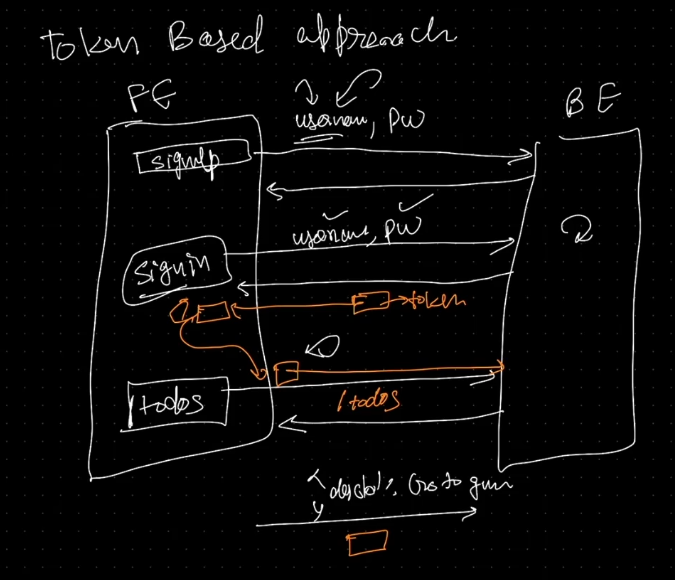 Token Based approach
FE
BE
username, PW
signup
username, PW
signin
token
/todos
/todos
Go to gym